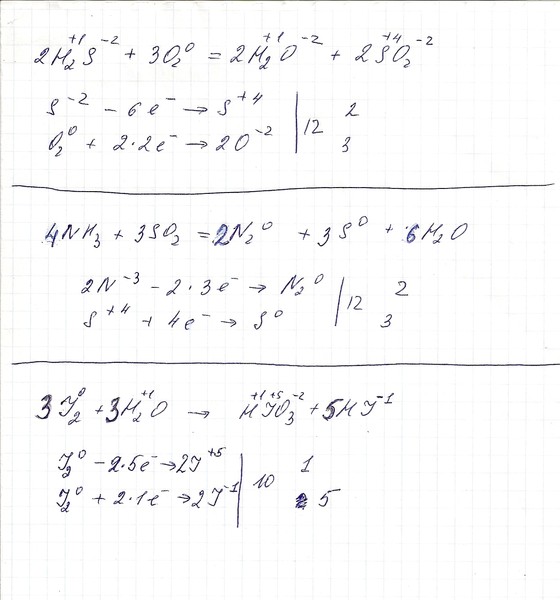 2H₂⁺¹S⁻² + 3O₂⁰ = 2H₂⁺¹O⁻² + 2S⁺⁴O₂⁻²
S⁻² − 6e⁻ → S⁺⁴ | 12 2
O₂⁰ + 2·2e⁻ → 2O⁻² | 3
4NH₃ + 3SO₂ = 2N₂⁰ + 3S⁰ + 6H₂O
2N⁻³ − 2·3e⁻ → N₂⁰ | 12 2
S⁺⁴ + 4e⁻ → S⁰ | 3
3J₂⁰ + 3H₂⁺¹O → H⁺¹J⁺⁵O₃⁻² + 5HJ⁻¹
J₂⁰ − 2·5e⁻ → 2J⁺⁵ | 10 1
J₂⁰ + 2·1e⁻ → 2J⁻¹ | 5